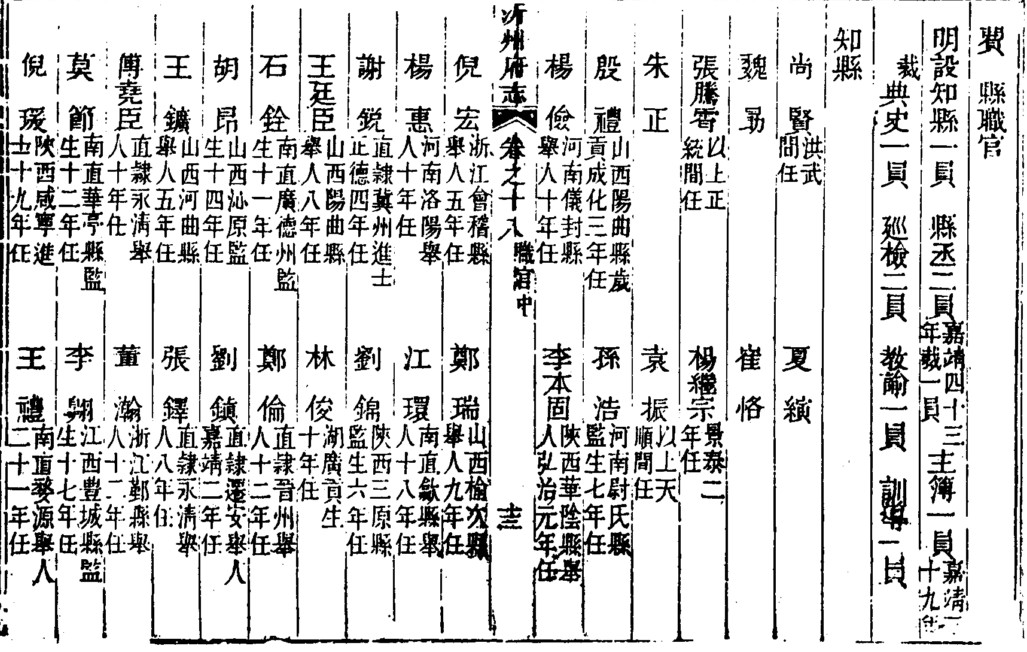 費縣職官
明設知縣一員　縣丞二員嘉靖四十三年裁一員主簿一員嘉靖
十九年
裁　典史一員　巡檢二員　教諭一員　訓導一員
知縣
尚賢洪武間任　夏縯
魏勗　崔恪
張騰霄以上正統間任　楊繼宗景泰二年任
朱正　袁振以上天順間任
殷禮山西陽曲縣歲貢成化三年任　孫浩河南尉氏縣監生七年任
楊儉河南儀封縣舉人十年任　李本固陝西華陰縣舉人弘治元年任
沂州府志　卷之十八　職官中　十三
倪宏浙江會稽縣舉人五年任　鄭瑞山西榆次縣舉人九年任
楊惠河南洛陽舉人十年任　江環南直歙縣舉人十八年任
謝銳直隸冀州進士正德四年任　劉錦陝西三原縣監生六年任
王廷臣山西陽曲縣舉人八年任　林俊湖廣貢生十年任
石銓南直廣德州監生十一年任　鄭倫直隸晉州舉人十二年任
胡昂山西沁原監生十四年任　劉鎮直隸遷安舉人嘉靖二年任
王鑛山西河曲縣舉人五年任　張鐸直隸永清舉人八年任
傅堯臣直隸永清舉人十年任　董瀚浙江鄞縣舉人十二年任
莫節南直華亭縣監生十二年任　李翱江西豐城縣監生十七年任
倪瑗陝西咸寧進士十九年任　王禮南直婺源舉人二十一年任